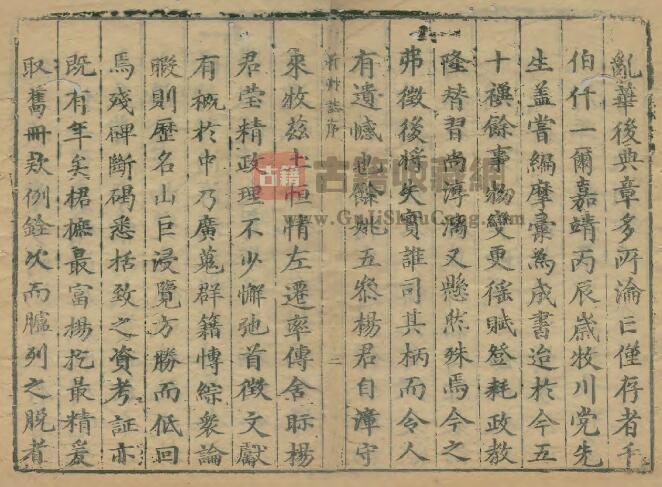 亂華後典章多所淪亡僅存者千
伯仟一爾嘉靖丙辰歲牧川党先
生盖嘗編摩彙為成書迨於今五
十禩餘事物變更徭賦登耗政教
隆替習尚淳漓又懸然殊焉今之
弗徵後將失實誰司其柄而令人
有遺憾也餘姚五泰楊君自漳守
新野誌序 二
來牧玆土恒情左遷率傳舍眎楊
君瑩精政理不少懈弛首徵文獻
有概於中乃廣蒐群籍慱綜衆論
暇則歷名山巨浸覽方勝而低回
焉殘碑斷碣悉括致之資考証亦
既有年矣桾摭最富楊扢最精爰
取舊冊欵例銓次而臚列之脫者
古籍 古籍收藏網
www.GuJiShouCang.com